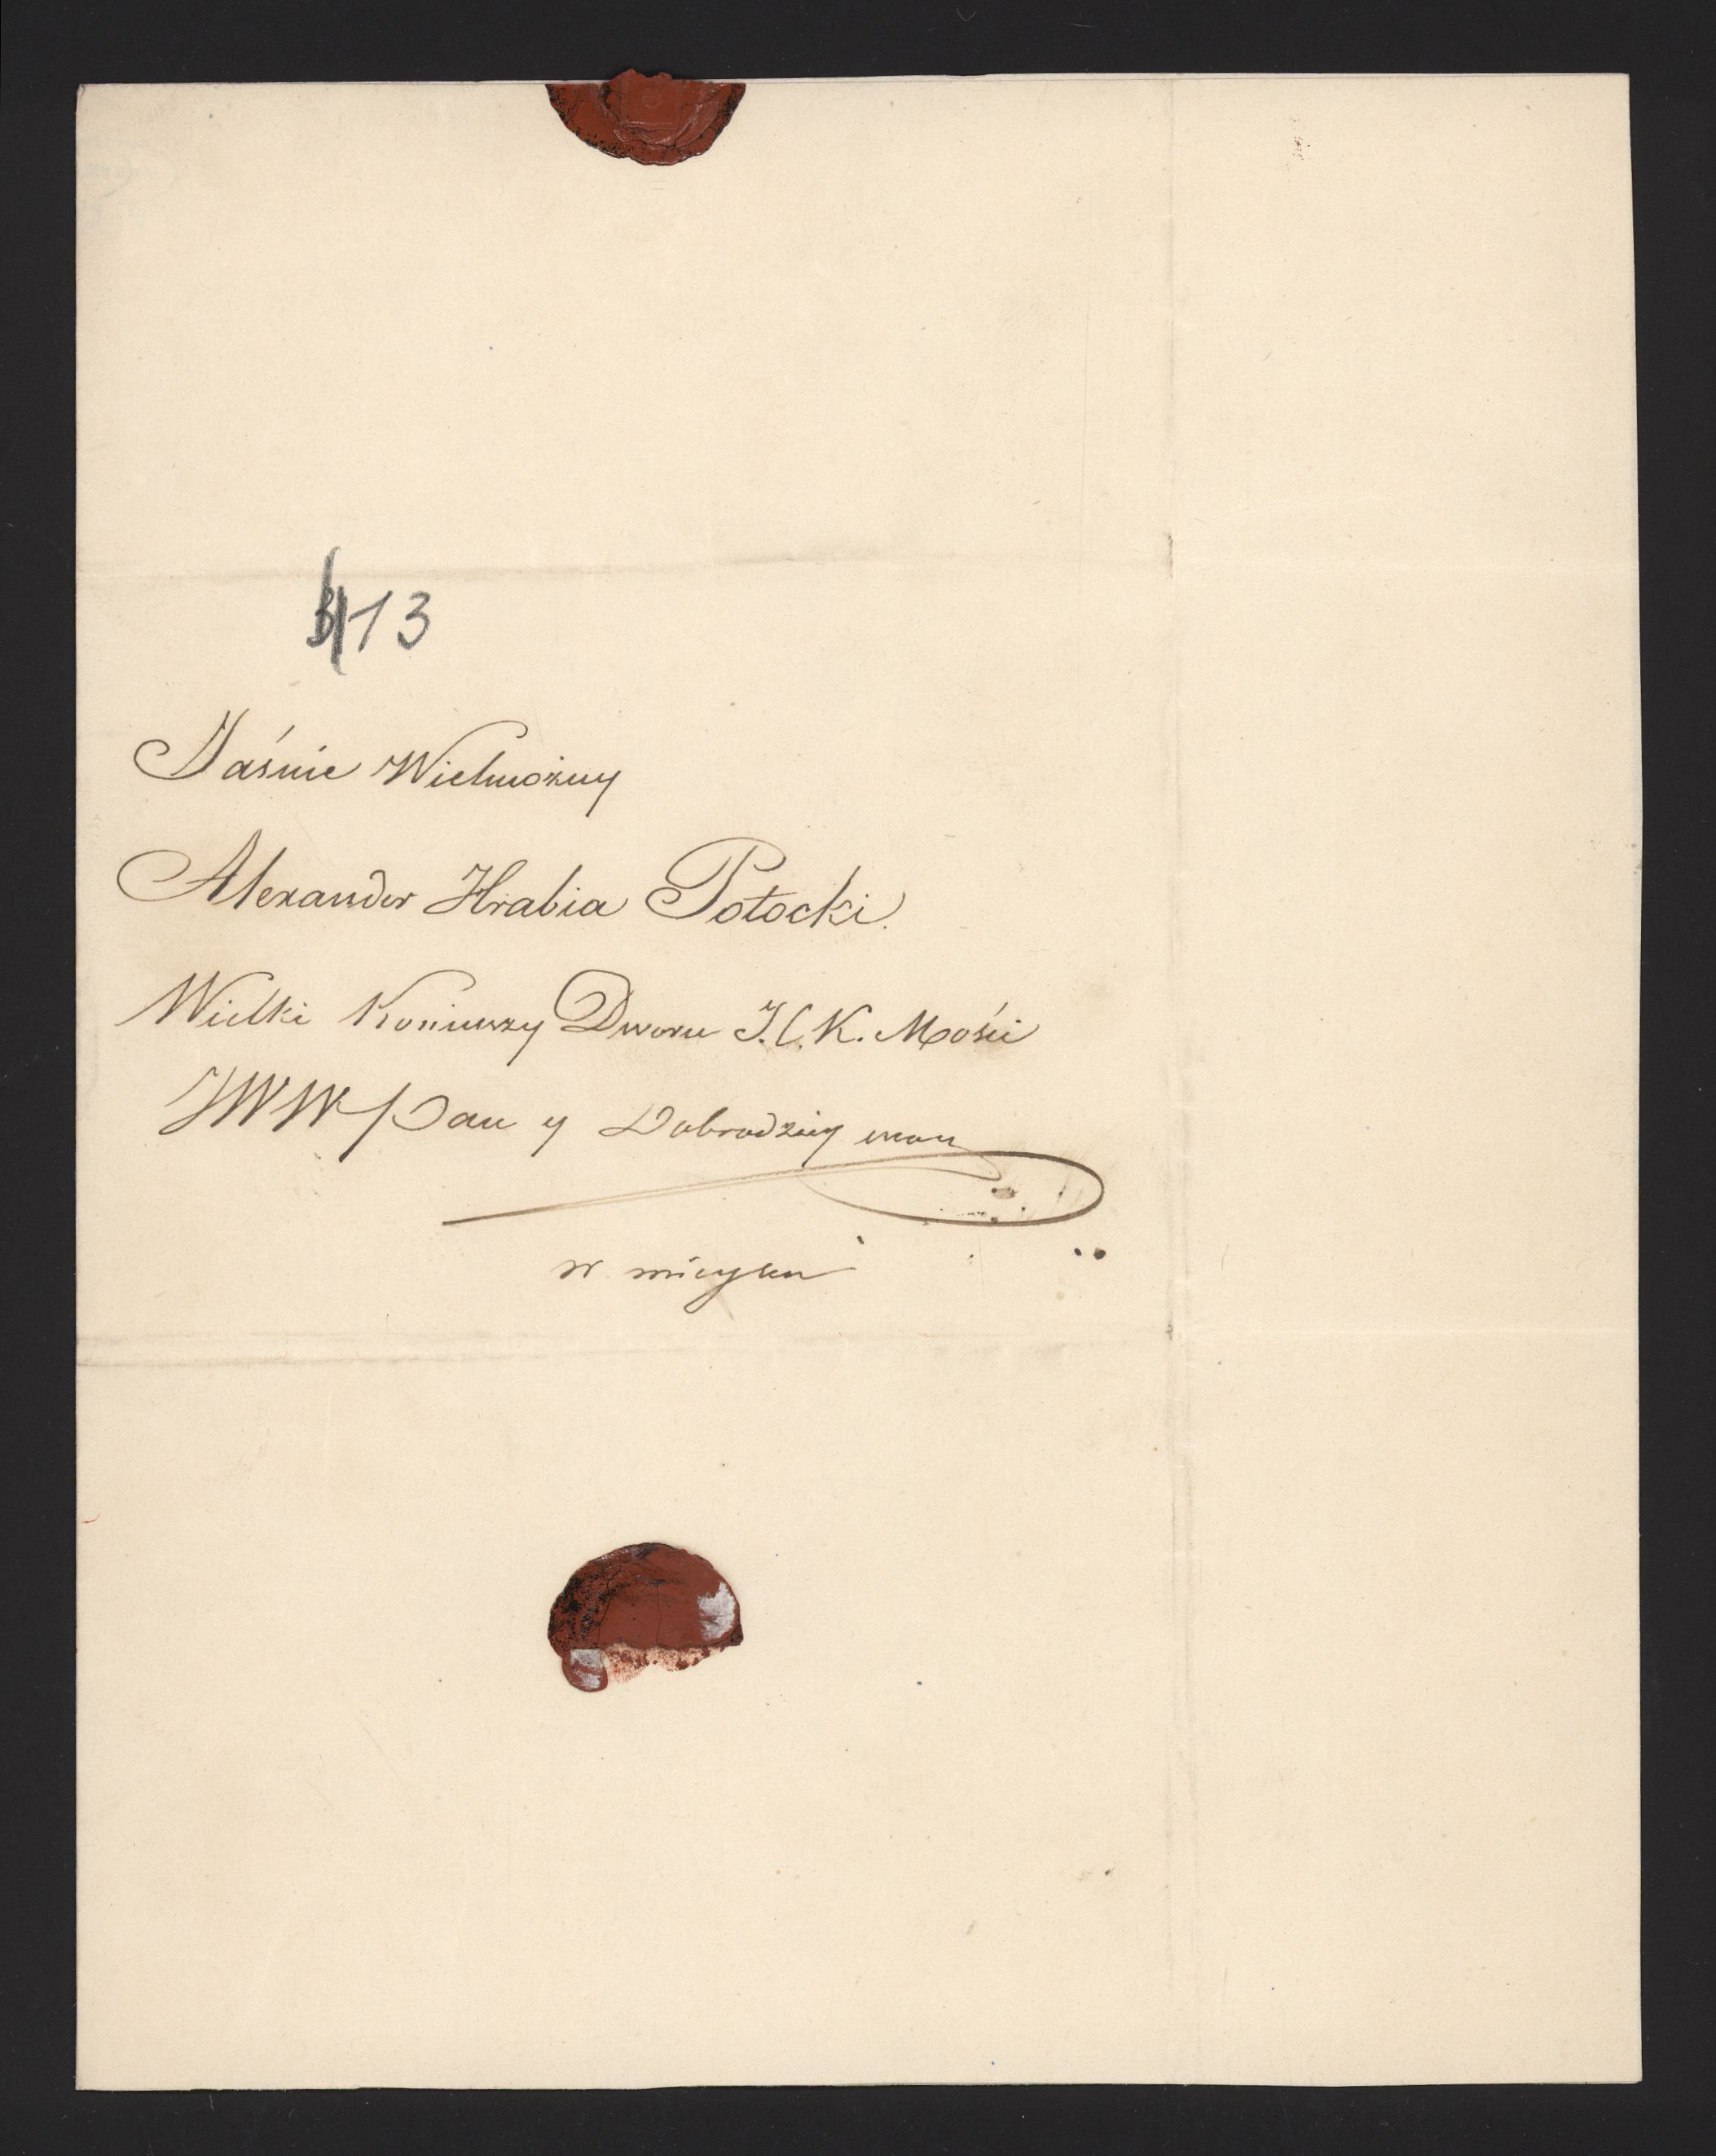 13
Jaśnie Wielmożny
Alexander Hrabia Potocki.
Wielki Koniuszy Dworu J.C.K. Mości
JWW Pan y Dobrodziey
w mieyscu